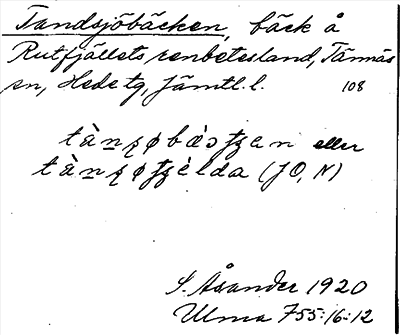 Tandsjöbäcken, bäck å
Rutfjällets renbetesland, Tännäs
sn, Hede tg, Jämtl. l. 108
eller
(JO, N)
S. Åsander 1920
Ulma 755:16:12